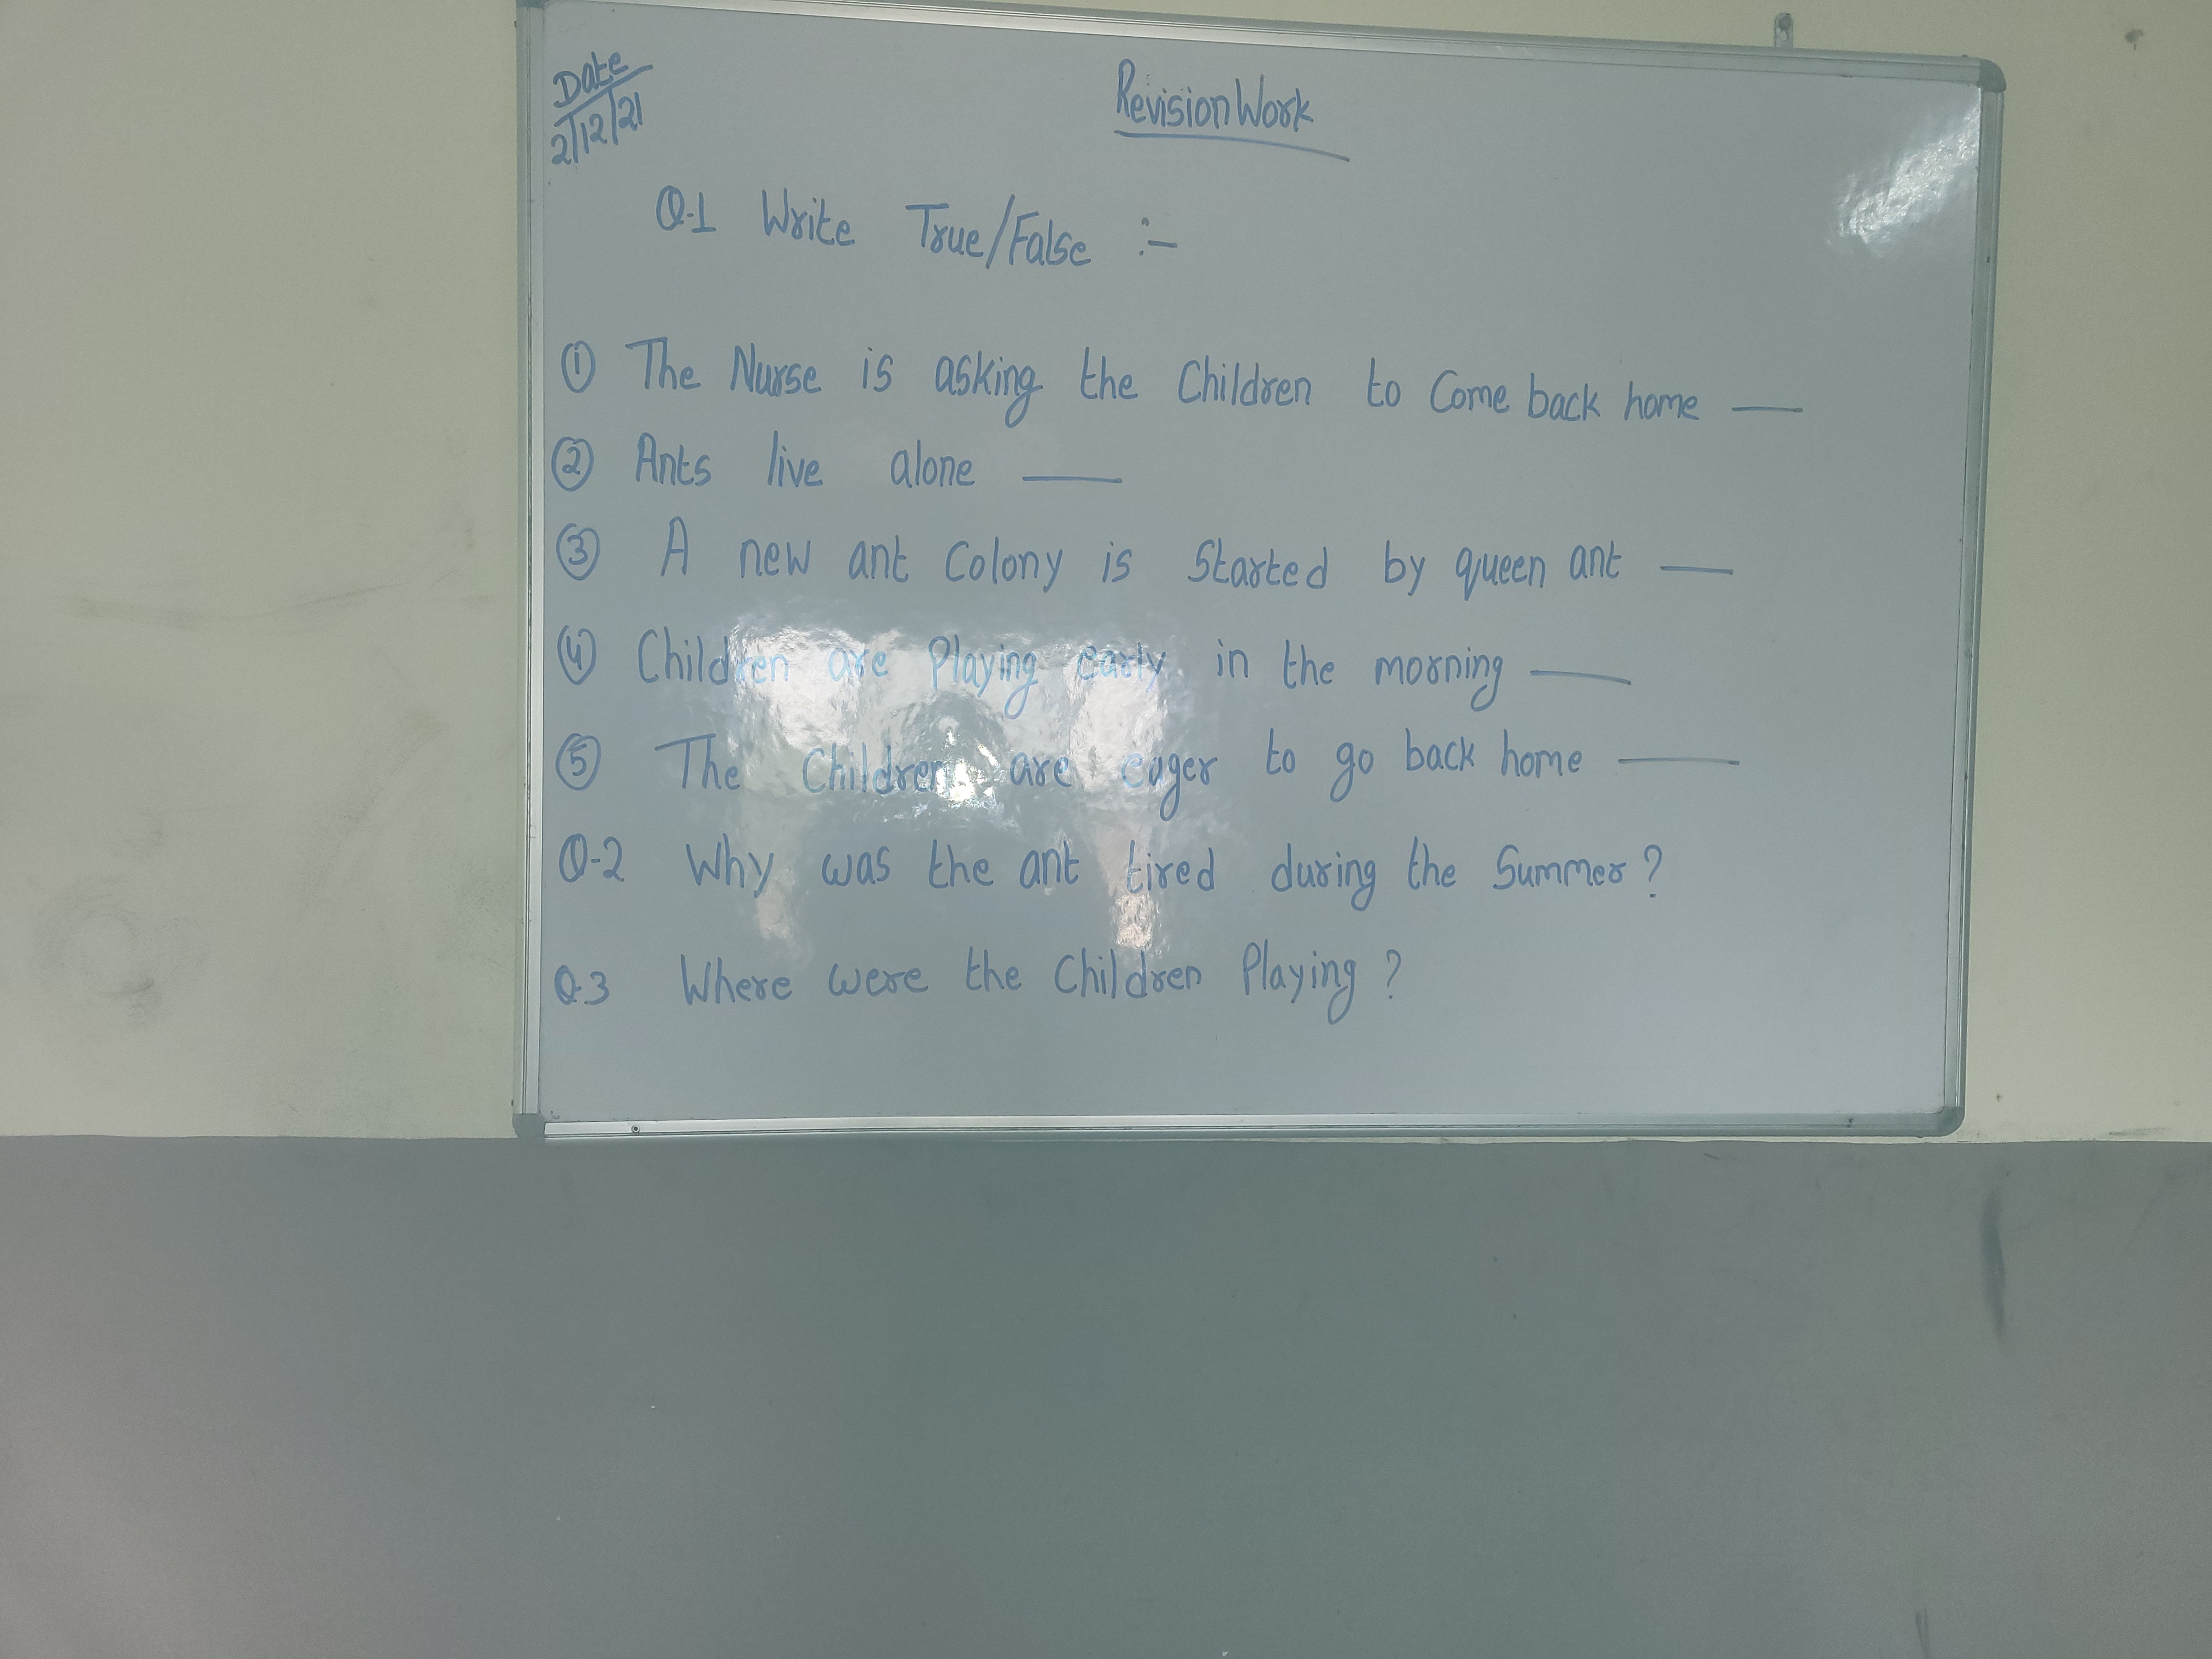 Date
2/12/21
Revision Work
Q.1 Write True/False :-
① The Nurse is asking the Children to Come back home —
② Ants live alone —
③ A new ant Colony is Started by queen ant —
④ Children are Playing early in the morning —
⑤ The Children are eager to go back home —
Q-2 Why was the ant tired during the Summer?
Q.3 Where were the Children Playing?